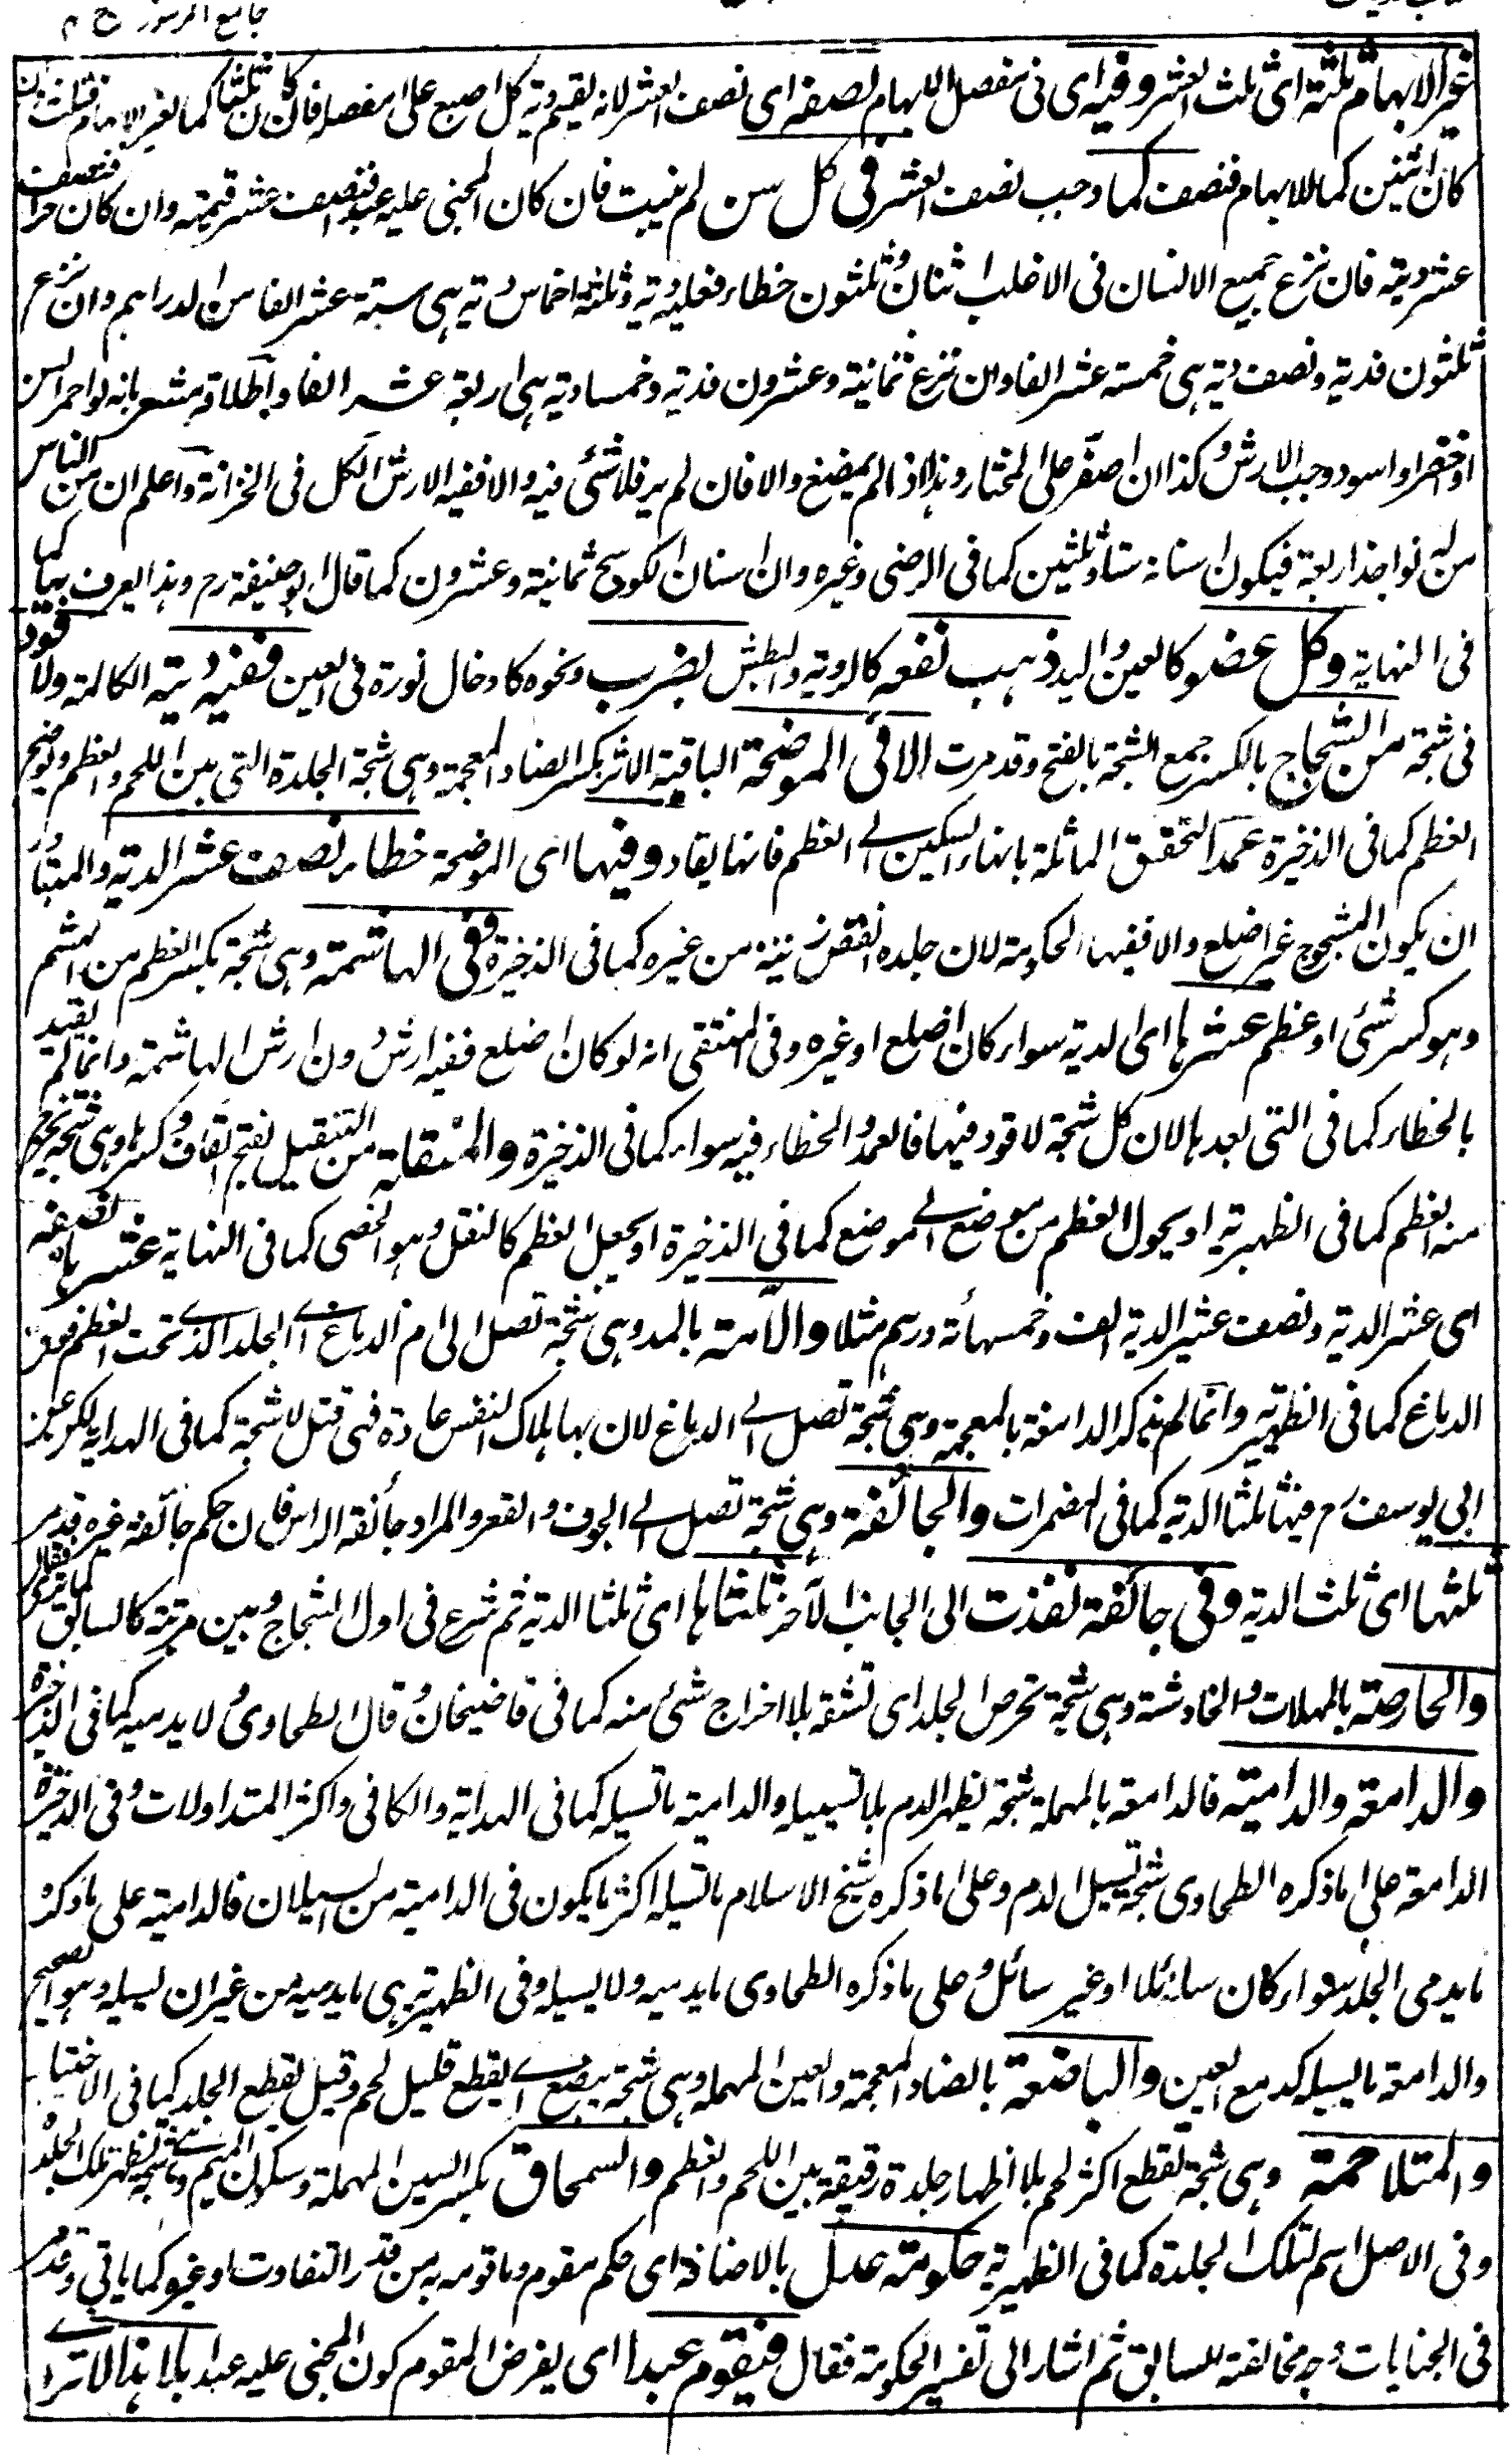 جامع الرموز ج م
غير الابهام ثلثه اى ثلث العشر وفيه اى فى مفصل الابهام نصفه اى نصف العشر لانه يقيم دية كل اصبع على مفصله فان كان ثلثا كما لغير الابهام فثلث وان
كان اثنين كما للابهام فنصف كما وجب نصف العشر فى كل سن لم ينبت فان كان المجنى عليه عبدا فنصف عشر قيمته وان كان حرا فنصف
عشر ديته فان نزع جميع الانسان فى الاغلب اثنان وثلثون خطاء فعليه دية وثلثة اخماس دية هى ستة عشر الفا من الدراهم وان نزع
ثلثون فدية ونصف دية هى خمسة عشر الفا وان نزع ثمانية وعشرون فدية وخمسا دية هى اربعة عشر الفا واطلاقه مشعر بانه لو احمر السن
او اخضر او اسود وجب الارش وكذا ان اصفر على المختار وهذا اذا لم يمضغ والا فان لم ير فلا شئى فيه والا ففيه الارش الكل فى الخزانة واعلم ان من الناس
من له نواجذ اربعة فيكون اسنانه ستا وثلثين كما فى الرضى وغيره وان اسنان الكوسج ثمانية وعشرون كما قال ابو حنيفة رح وهذا يعرف بها كما
فى النهاية وكل عضو كالعين واليد ذهب نفعه كالروية والبطش بضرب ونحوه كادخال نورة فى العين ففيه ديته الكاملة ولا قود
فى شجة من الشجاج بالكسر جمع الشجة بالفتح وقد مرت الا فى الموضحة الباقية الاثر بكسر الضاد المعجمة وهى شجة الجلدة التى بين اللحم والعظم وتوضح
العظم كما فى الذخيرة عمدا لتحقق المماثلة بانهاء السكين الى العظم فانها يقاد وفيها اى الموضحة خطاء نصف عشر الدية والمتبادر
ان يكون المشجوج غير اضلع والا ففيها الحكومة لان جلده انقص زينة من غيره كما فى الذخيرة وفى الهاشمة وهى شجة بكسر العظم من الهشم
وهو كسر شئى او عظم عشرها اى الدية سواء كان اضلع او غيره وفى المنتقى انه لو كان اضلع ففيه ارش دون ارش الهاشمة وانما لم يقيد
بالخطاء كما فى التى بعدها لان كل شجة لا قود فيها فالعمد والخطاء فيه سواء كما فى الذخيرة والمنقلة من التنقيل بفتح القاف وكسرها وهى شجة يخرج
منه العظم كما فى الظهيرية او يحول العظم من موضع الى موضع كما فى الذخيرة او يجعل العظم كالنقل وهو الحصى كما فى النهاية عشرها ونصفه
اى عشر الدية ونصف عشر الدية الف وخمسمأئة درهم مثلا والآمة بالمد وهى شجة تصل الى ام الدماغ اى الجلد الذى تحت العظم فوق
الدماغ كما فى الظهيرية وانما لم يذكر الدامغة بالمعجمة وهى شجة تصل الى الدماغ لان بها هلاك النفس عادة فهى قتل لا شجة كما فى الهداية لكن عن
ابى يوسف رح فيها ثلثا الدية كما فى المضمرات والجائفة وهى شجة تصل الى الجوف والقعر والمراد جائفة الراس فان حكم جائفة غيره قد مر
ثلثها اى ثلث الدية وفى جائفة نفذت الى الجانب الآخر ثلثاها اى ثلثا الدية ثم شرع فى اول الشجاج وبين مرتبة كالسابق فقال كما ترى
والحارصة بالمهملات والخادشة وهى شجة تحرص الجلد اى تشقه بلا اخراج شئى منه كما فى قاضيخان وقال الطحاوى لا يدميه كما فى الذخيرة
والدامعة والدامية فالدامعة بالمهملة شجة تظهر الدم بلا تسييله والدامية ما تسيله كما فى الهداية والكافى واكثر المتداولات وفى الذخيرة
الدامعة على ما ذكره الطحاوى شجة تسيل الدم وعلى ما ذكره شيخ الاسلام ما تسيله اكثر ما يكون فى الدامية من السيلان فالدامية على ما ذكره
ما يدمى الجلد سواء كان سائلا او غير سائل وعلى ما ذكره الطحاوى ما يدميه ولا يسيله وفى الظهيرية هى ما يدميه من غير ان يسيله وهو الصحيح
والدامعة ما يسيله كدمع العين والباضعة بالضاد المعجمة والعين المهملة وهى شجة تبضع اى يقطع قليل لحم وقيل يقطع الجلد كما فى الاختيار
والمتلاحمة وهى شجة تقطع اكثر لحم بلا اظهار جلدة رقيقة بين اللحم والعظم والسمحاق بكسر السين المهملة وسكون الميم وهى شجة تظهر تلك الجلدة
وفى الاصل اسم لتلك الجلدة كما فى الظهيرية حكومة عدل بالاضافة اى حكم مقوم وما قومه به من قدر التفاوت او غيره كما ياتى وقد مر
فى الجنايات وجه مخالفته للسابق ثم اشار الى تفسير الحكومة فقال فيقوم عبدا اى يفرض المقوم كون المجنى عليه عبدا بلا هذا الاثر اى